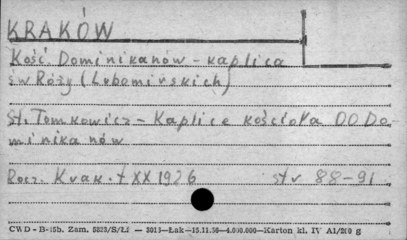 KRAKÓW
Kość. Dominikanów - kaplica
św Róży (Lubomirskich)
St. Tomkowicz - Kaplice kościoła OO Do-
minikanów
Rocz. Krak. t XX 1926 str 88-91
CWD - B-15b. Zam. 5823/S/ŁJ — 3013—Łak—15.11.50—4.000.000—Karton kl. IV A1/200 g